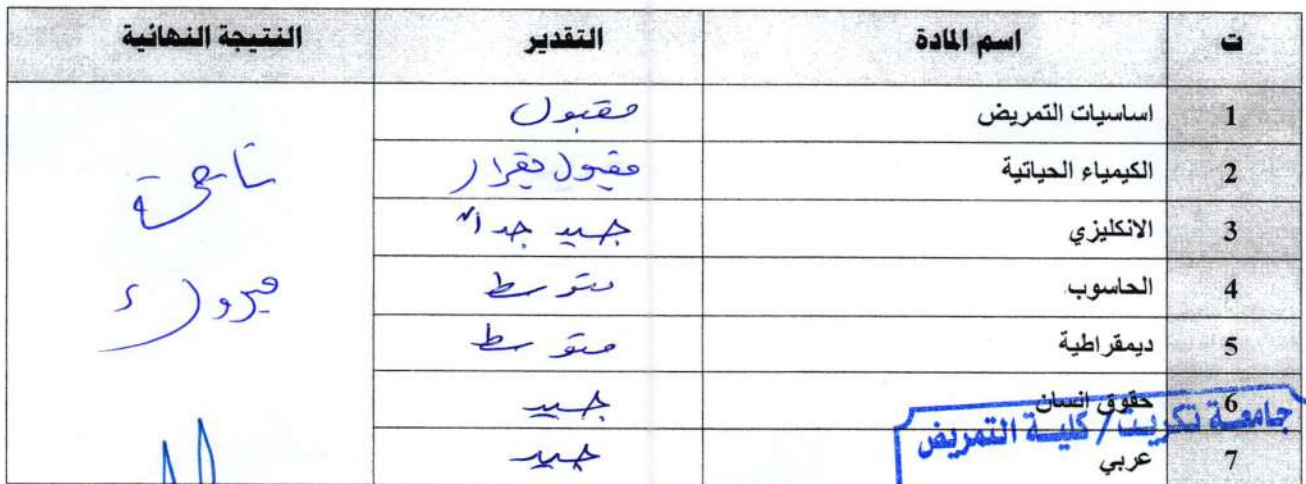 ت اسم المادة التقدير النتيجة النهائية
1 اساسيات التمريض مقبول
2 الكيمياء الحياتية مقبول بقرار
3 الانكليزي جيد جداً
4 الحاسوب متوسط
5 ديمقراطية متوسط
6 حقوق انسان جيد
7 عربي جيد
ناجحة
مبروك
جامعة تكريت / كلية التمريض